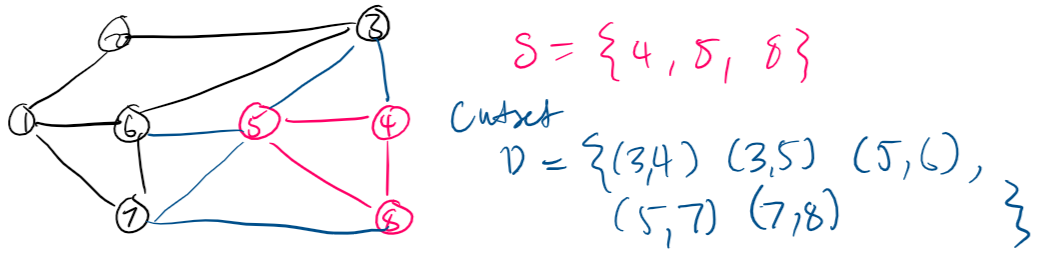 2
3
S = {4, 5, 8}
1
6
5
4
Cutset
D = {(3,4) (3,5) (5,6),
7
8
(5,7) (7,8) }